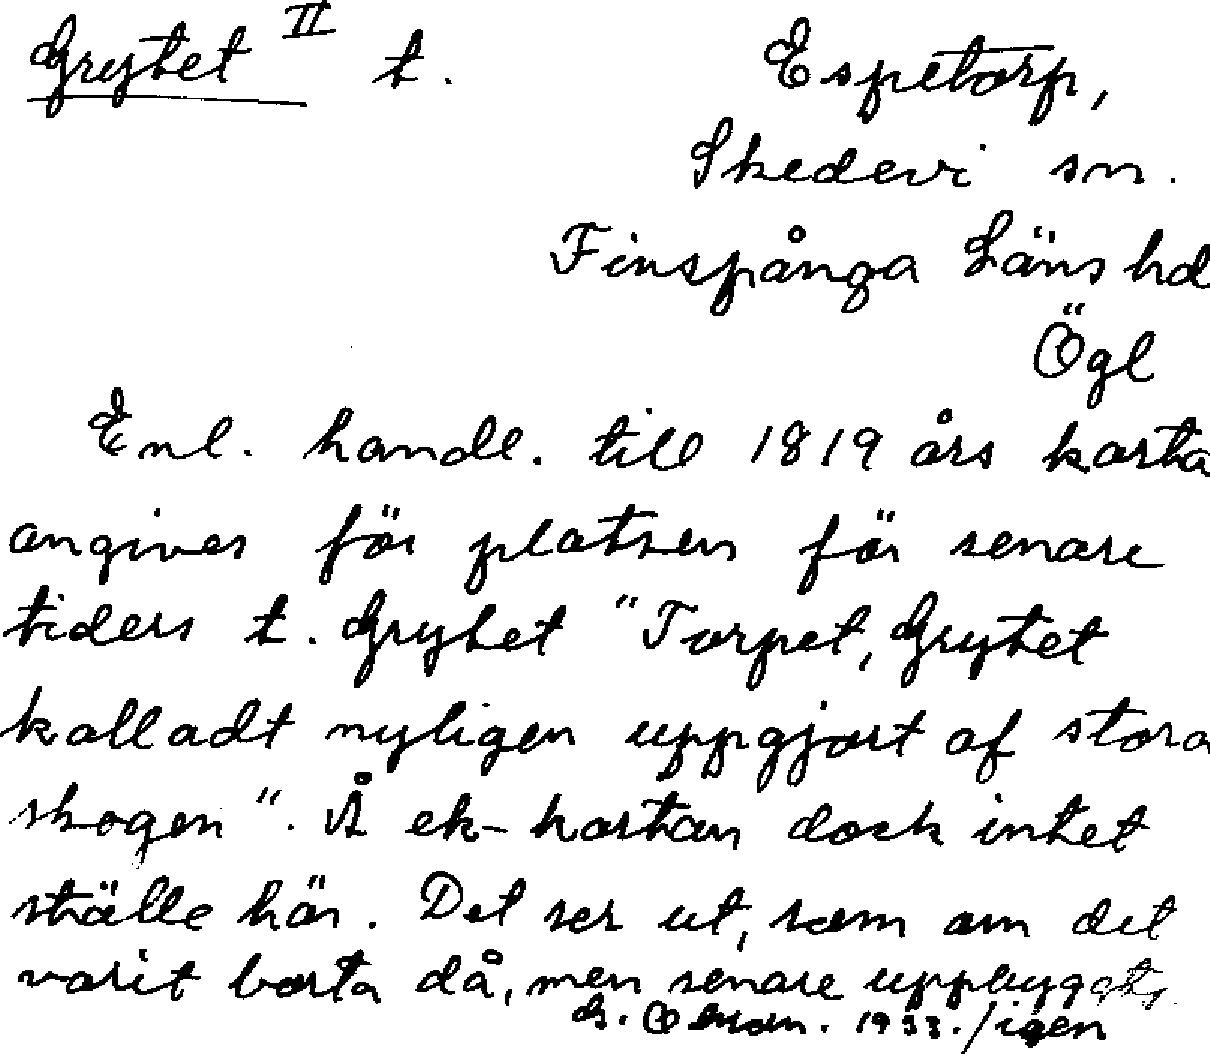 Grytet II t.
Espetorp,
Skedevi sn.
Finspånga Läns hd
Ögl
Enl. handl. till 1819 års karta
angives för platsen för senare
tiders t. Grytet "Torpet, Grytet
kalladt nyligen uppgjort af stora
skogen". Å ek-kartan dock intet
ställe här. Det ser ut, som om det
varit borta då, men senare uppbyggts
/igen
1933.